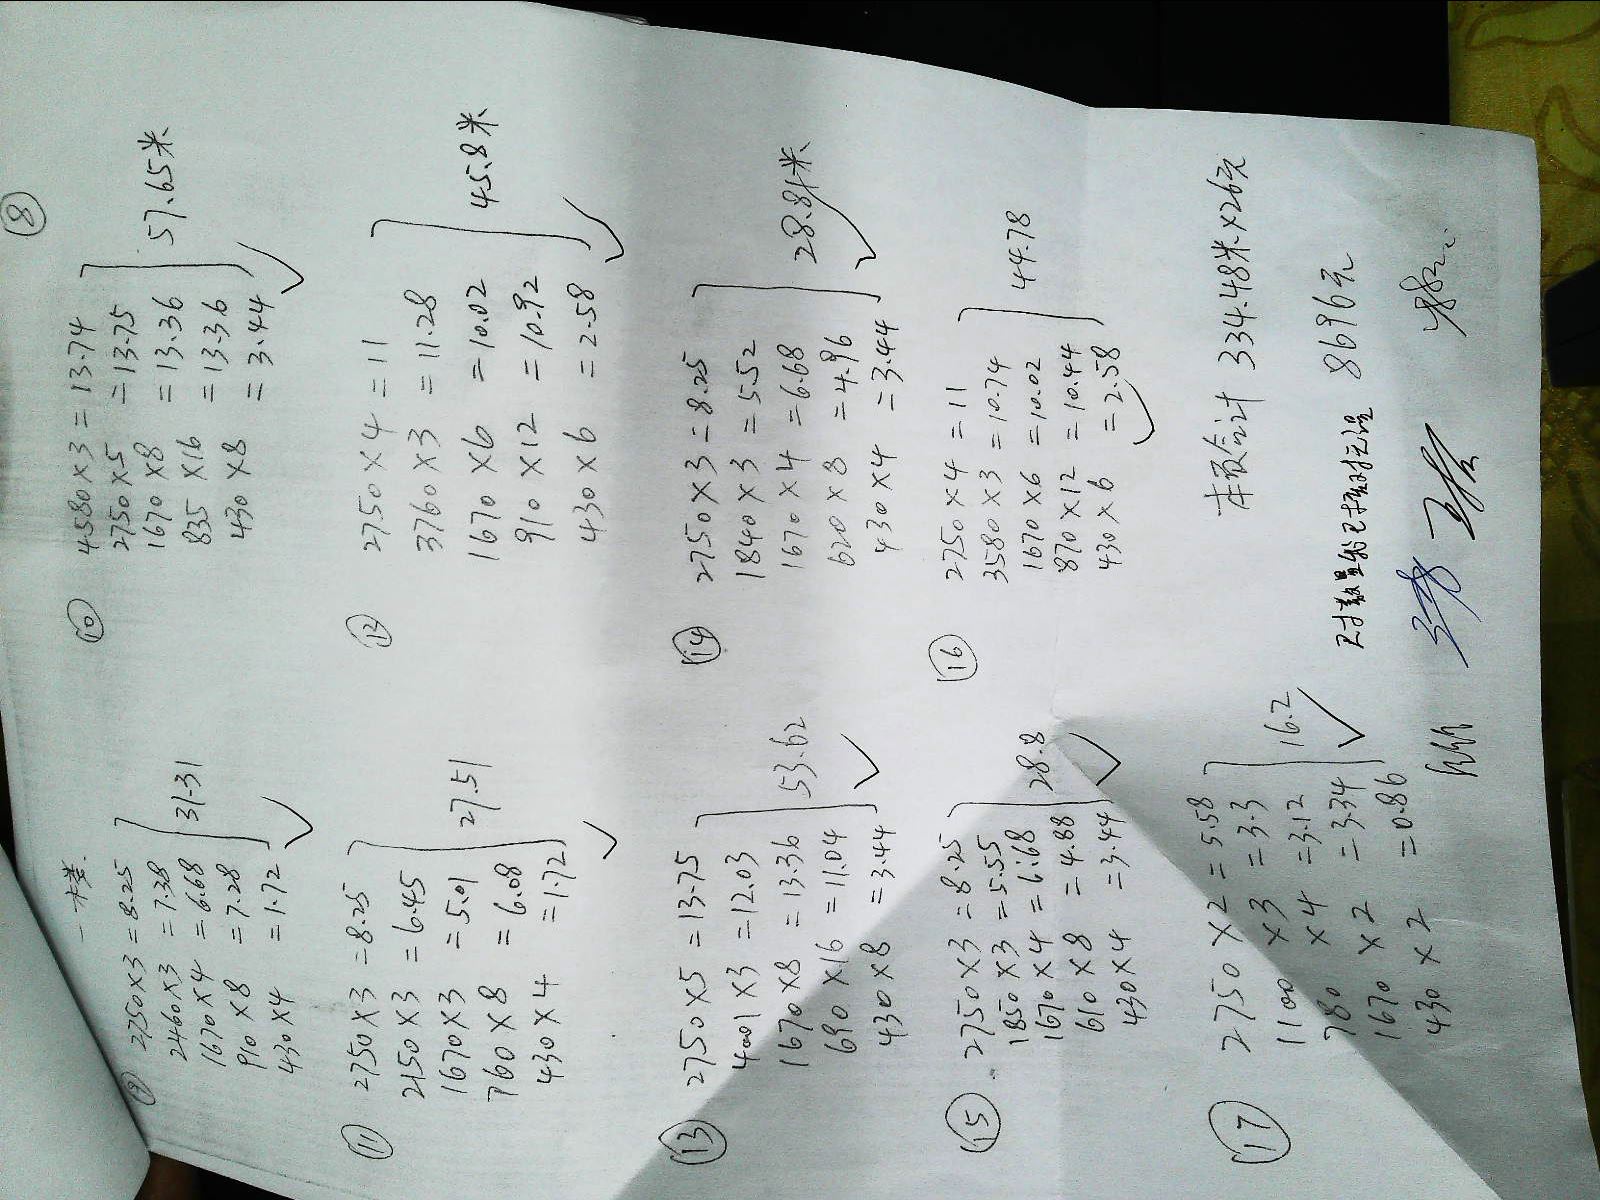 ⑧
⑨
2750×3=8.25
2460×3=7.38
1670×4=6.68
910×8=7.28
430×4=1.72
31.31
⑩
4580×3=13.74
2750×5=13.75
1670×8=13.36
835×16=13.36
430×8=3.44
57.65米
⑪
2750×3=8.25
2150×3=6.45
1670×3=5.01
760×8=6.08
430×4=1.72
27.51
⑫
2750×4=11
3760×3=11.28
1670×6=10.02
910×12=10.92
430×6=2.58
45.8米
⑬
2750×5=13.75
4001×3=12.03
1670×8=13.36
690×16=11.04
430×8=3.44
53.62
⑭
2750×3=8.25
1840×3=5.52
1670×4=6.68
620×8=4.96
430×4=3.44
28.81米
⑮
2750×3=8.25
1850×3=5.55
1670×4=6.68
610×8=4.88
430×4=3.44
28.8
⑯
2750×4=11
3580×3=10.74
1670×6=10.02
870×12=10.44
430×6=2.58
44.78
⑰
2750×2=5.58
1100×3=3.3
780×4=3.12
1670×2=3.34
430×2=0.86
16.2
本页合计 334.48米×26元
8696元